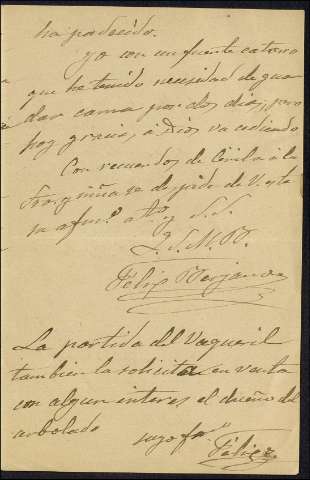 ha padecido.
yo con un fuerte catarro
que he tenido necesidad de guar
dar cama por dos dias, pero
hoy gracias á Dios va cediendo
Con recuerdos de Cecilia á la
Fra. y niña se despide de V. esta
su afmo. ato. y S.S.
Q.S.M.B.
Félix
La partida del Vaqueril
tambien la solicita en venta
con algun interes el dueño del
arbolado
suyo
Félix